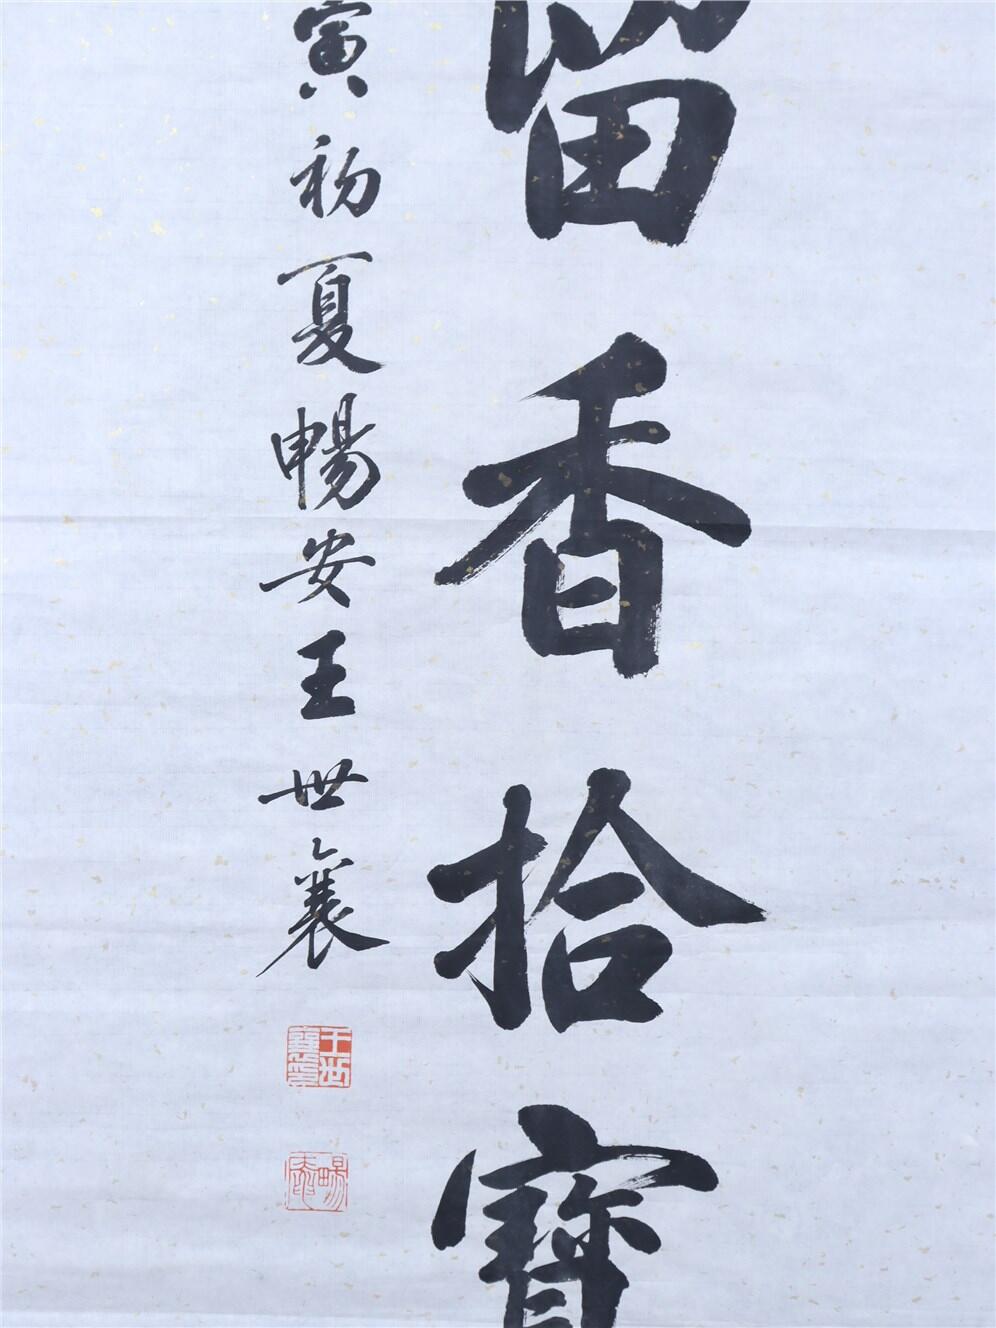 留香拾寶
寅初夏暢安王世襄
王世襄鉨
暢安